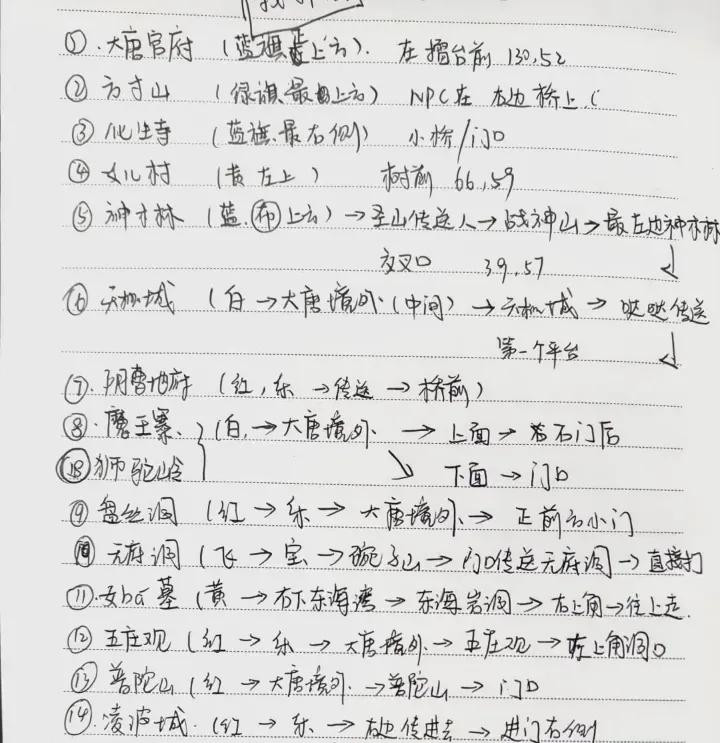 ①.大唐官府 (蓝旗最上方). 在擂台前 130,52
②方寸山 (绿旗最上方) NPC在 右边桥上(
③化生寺 (蓝旗.最右侧) 小桥/门口
④女儿村 (黄左上) 树前 66,59
⑤神木林 (蓝.布上方)→圣山传送人→战神山→最左边神木林
交叉口 39,57
⑥天机城 (白→大唐境外(中间)→天机城→哒哒传送
第一个平台
⑦.阴曹地府 (红,东→传送→桥前)
⑧.魔王寨、(白,→大唐境外 → 上面→ 石门后
⑱狮驼岭 下面→门口
⑨盘丝洞 (红→东→ 大唐境外→ 正前方小门
⑩无底洞 (飞→宝→碗子山→门口传送无底洞→直接打
⑪.女bα墓 (黄→右下东海湾→东海岩洞→右上角→往上走.
⑫五庄观 (红→东→大唐境外→五庄观→右上角洞口
⑬普陀山 (红→大唐境外→普陀山→门口
⑭.凌波城.(红→东→右边传进去→进门右侧